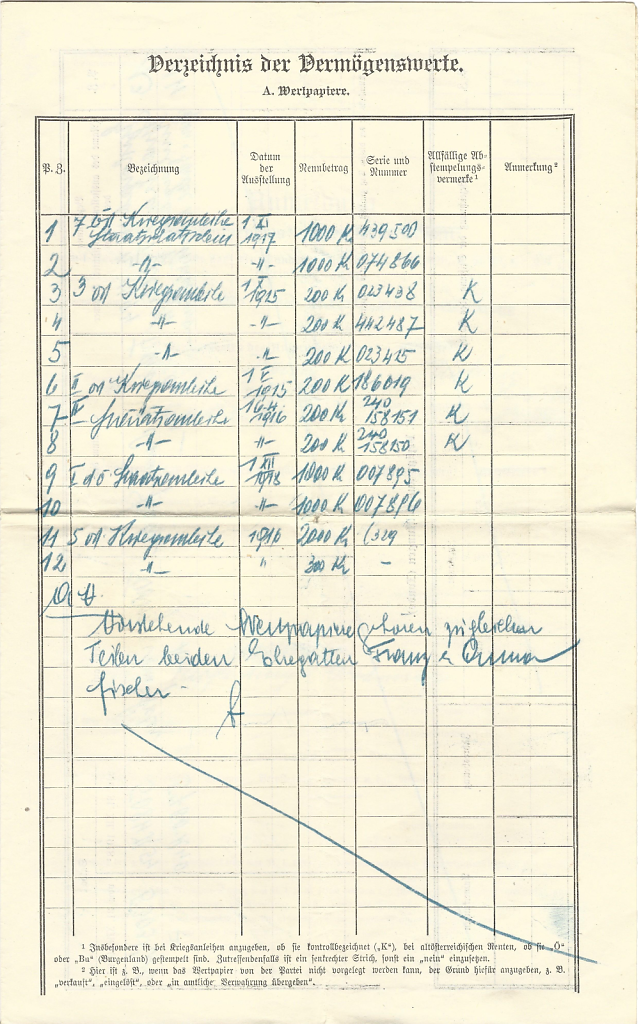 Verzeichnis der Vermögenswerte.
A. Wertpapiere.
P. Z. Bezeichnung Datum der Ausstellung Nennbetrag Serie und Nummer Allfällige Abstempelungsvermerke¹ Anmerkung²
1 7 öst Kriegsanleihe 1 XI 1917 1000 K 439500
2 -"- -"- 1000 K 074866
3 3 öst Kriegsanleihe 1 1915 200 K 023438 K
4 -"- -"- 200 K 442487 K
5 -"- -"- 200 K 023425 K
6 II öst Kriegsanleihe 1 V 1915 200 K 186019 K
7 IV Staatsanleihe 1916 200 K 240 158151 K
8 -"- -"- 200 K 240 158150 K
9 Staatsanleihe 1 XII 1918 1000 K 007895
10 -"- -"- 1000 K 007896
11 5 öst Kriegsanleihe 1916 2000 K
12 -"- " 300 K -
Vorstehende Wertpapiere gehören zu gleichen
Teilen beiden Ehegatten Franz &
Fischer -
¹ Insbesondere ist bei Kriegsanleihen anzugeben, ob sie kontrollbezeichnet („K“), bei altösterreichischen Renten, ob sie „Ö“
oder „Bu“ (Burgenland) gestempelt sind. Zutreffendenfalls ist ein senkrechter Strich, sonst ein „nein“ einzusetzen.
² Hier ist z. B., wenn das Wertpapier von der Partei nicht vorgelegt werden kann, der Grund hiefür anzugeben, z. B.
„verkauft“, „eingelöst“, oder „in amtliche Verwahrung übergeben“.